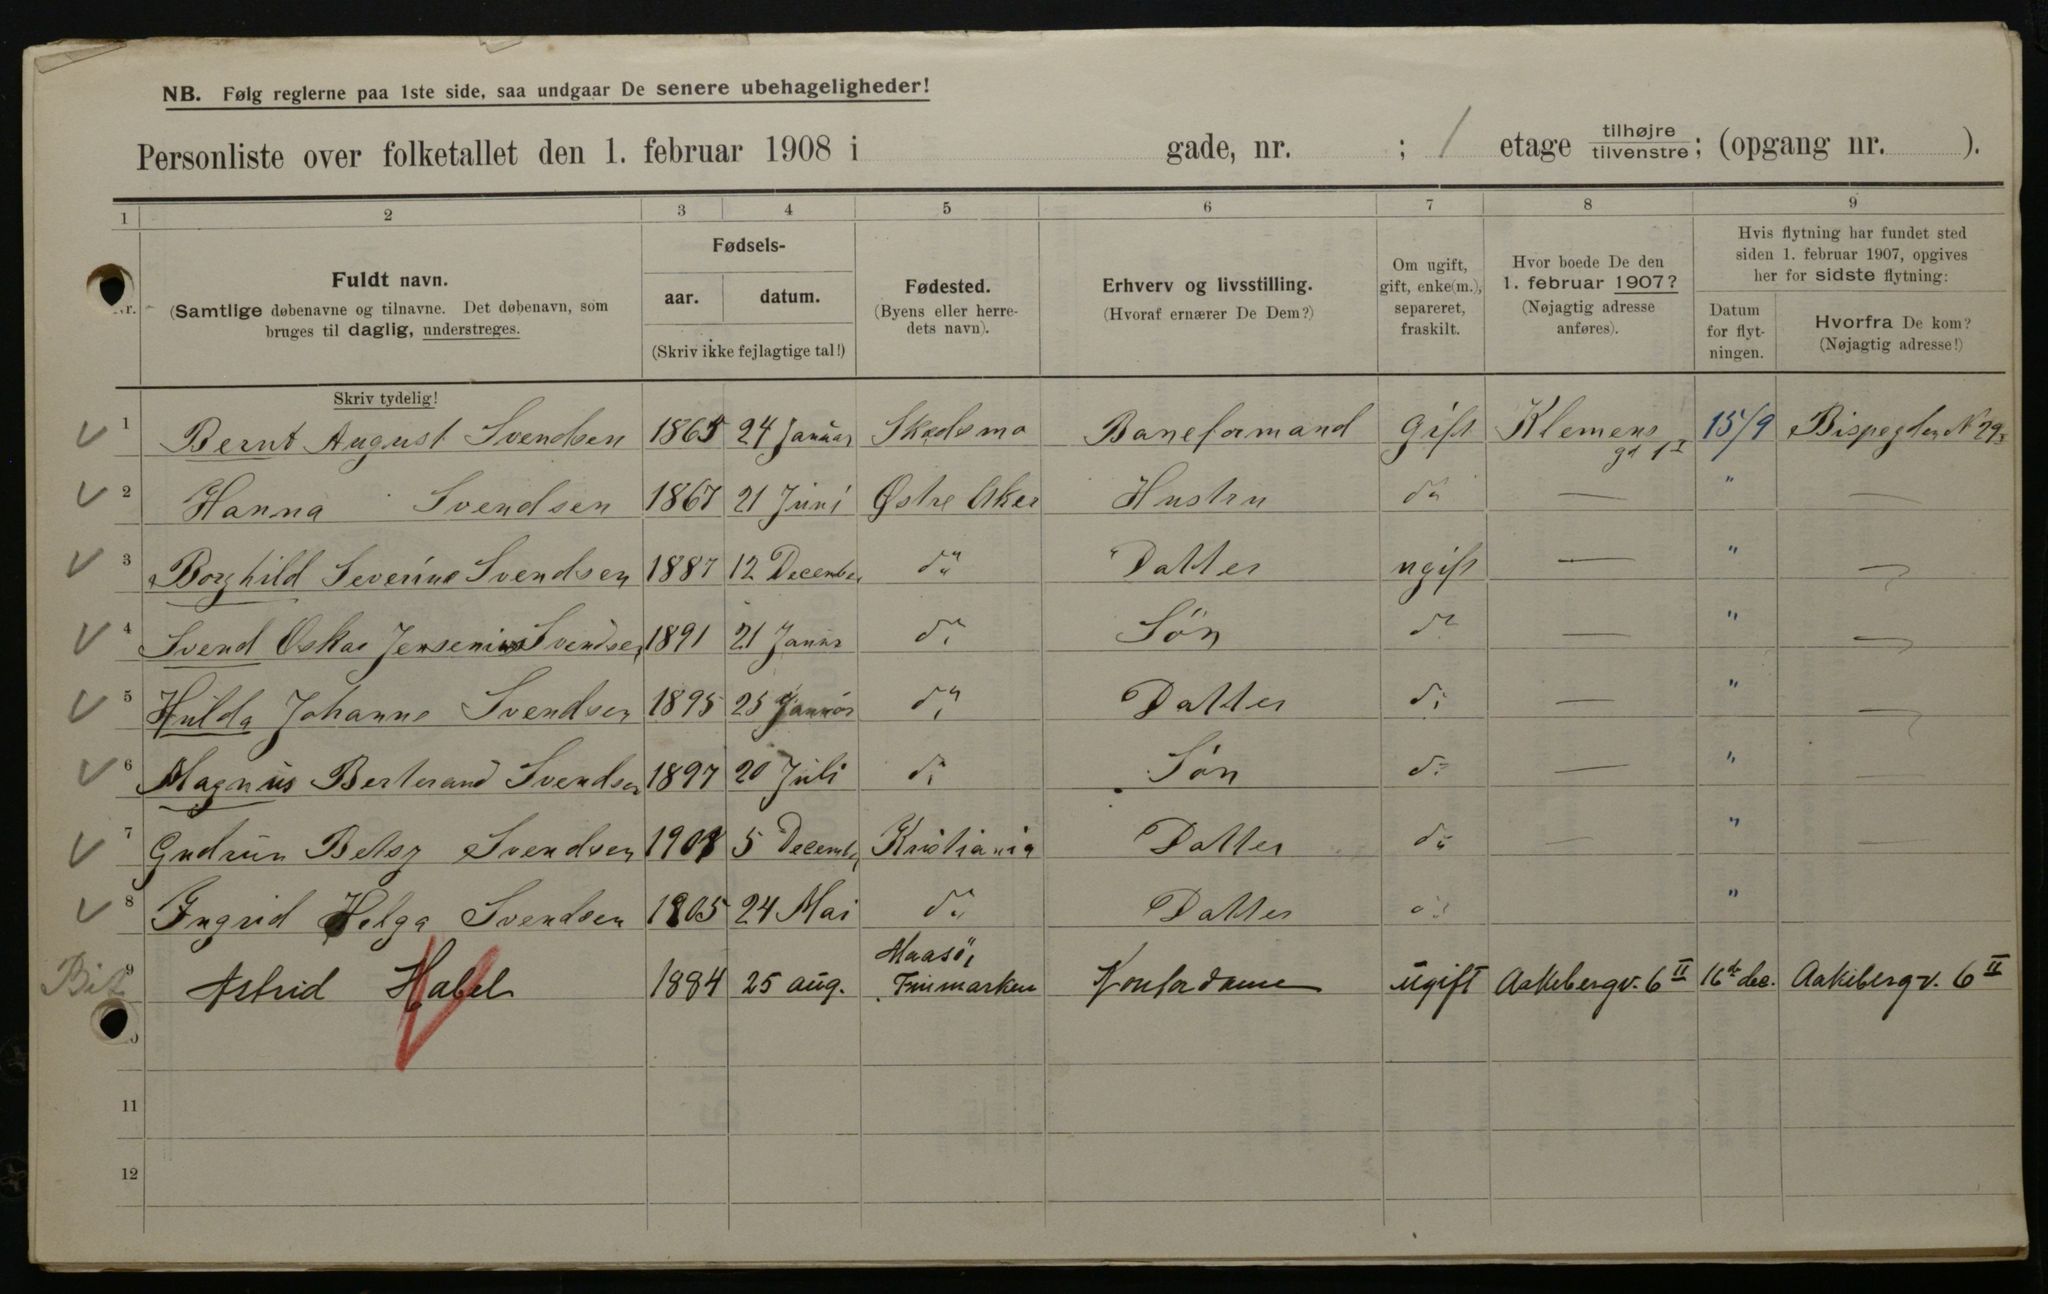 NB. Følg reglerne paa 1ste side, saa undgaar De senere ubehageligheder!
Personliste over folketallet den 1. februar 1908 i gade, nr. ; 1 etage tilhøjre tilvenstre; (opgang nr. ).
1 2 3 4 5 6 7 8 9
Nr.
Fuldt navn.
(Samtlige døbenavne og tilnavne. Det døbenavn, som
bruges til daglig, understreges.
Skriv tydelig!
Fødsels-
aar. datum.
(Skriv ikke fejlagtige tal!)
Fødested.
(Byens eller herre-
dets navn).
Erhverv og livsstilling.
(Hvoraf ernærer De Dem?)
Om ugift,
gift, enke(m.),
separeret,
fraskilt.
Hvor boede De den
1. februar 1907?
(Nøjagtig adresse
anføres).
Hvis flytning har fundet sted
siden 1. februar 1907, opgives
her for sidste flytning:
Datum
for flyt-
ningen.
Hvorfra De kom?
(Nøjagtig adresse!)
1 Bernt August Svendsen 1865 24 Januar Skedsmo Baneformand Gift Klemens gd 1 I 15/9 Bispegden N 29
2 Hanna Svendsen 1867 21 Juni Østre Aker Hustru do — " —
3 Borghild Severine Svendsen 1887 12 December do Datter ugift — " —
4 Svend Oskar Jensenius Svendsen 1891 21 Januar do Søn do — " —
5 Hulda Johanne Svendsen 1895 25 Januar do Datter do — " —
6 Magnus Berterand Svendsen 1897 20 Juli do Søn do — " —
7 Gudrun Betsy Svendsen 5 December Kristiania Datter do — " —
8 Ingrid Helga Svendsen 1905 24 Mai do Datter do "
9 Astrid Habel 1884 25 aug. Maasö, Finmarken Kontordame ugift Aakebergv. 6 II 16de dec. Aakebergv. 6 II
11
12